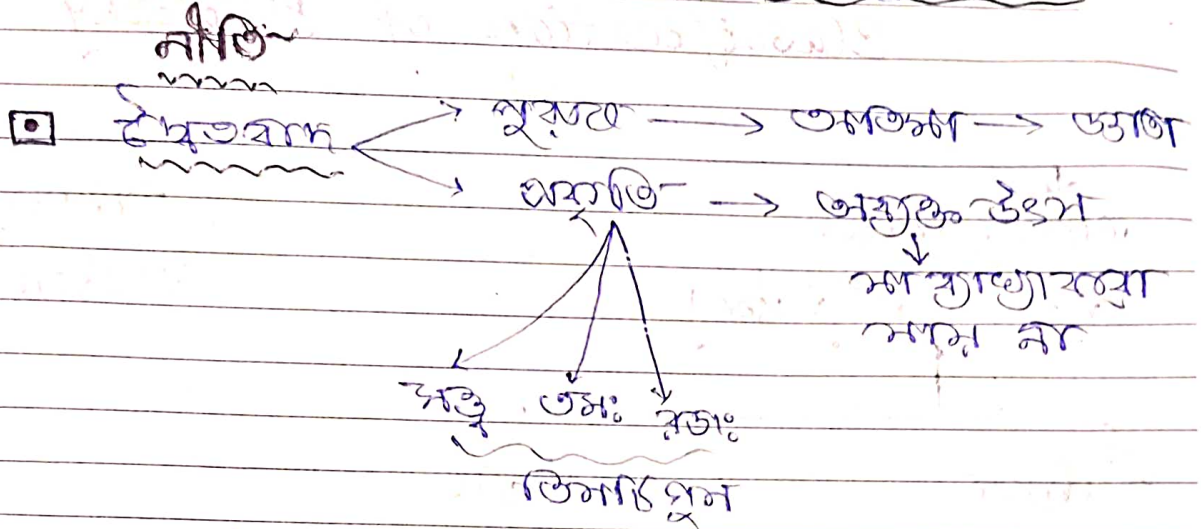 নীতি
দ্বৈতবাদ → পুরুষ → আত্মা → জ্ঞাতা
প্রকৃতি → অব্যক্ত উৎস
যা ব্যাখ্যা করা
যায় না
সত্ত্ব তমঃ রজঃ
তিনটি গুন